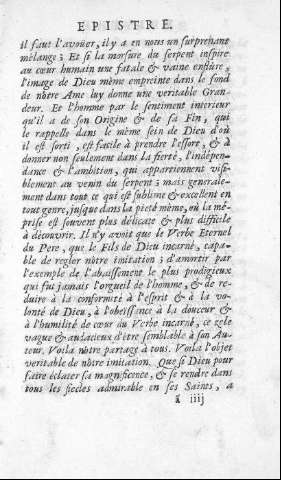 EPISTRE.
il faut l'avoüer, il y a en nous un surprenant
mélange; Et si la morsure du serpent inspire
au cœur humain une fatale & vaine enflûre,
l'image de Dieu même empreinte dans le fond
de nôtre Ame luy donne une veritable Gran-
deur. Et l'homme par le sentiment interieur
qu'il a de son Origine & de sa Fin, qui
le rappelle dans le même sein de Dieu d'où
il est sorti, est facile à prendre l'essort, & à
donner non seulement dans la fierté, l'indépen-
dance & l'ambition, qui appartiennent visi-
blement au venin du serpent; mais generale-
ment dans tout ce qui est sublime & excellent en
tout genre, jusque dans la pieté même, où la mé-
prise est souvent plus délicate & plus difficile
à découvrir. Il n'y avoit que le Verbe Eternel
du Pere, que le Fils de Dieu incarné, capa-
ble de regler nôtre imitation; d'amortir par
l'exemple de l'abaissement le plus prodigieux
qui fut jamais l'orgueil de l'homme, & de re-
duire à la conformité à l'esprit & à la vo-
lonté de Dieu, à l'obeïssance à la douceur &
à l'humilité de cœur du Verbe incarné, ce zele
vague & audacieux d'être semblable à son Au-
teur. Voila nôtre partage à tous. Voila l'objet
veritable de nôtre imitation. Que si Dieu pour
faire éclater sa magnificence, & se rendre dans
tous les siecles admirable en ses Saints, a
ã iiij